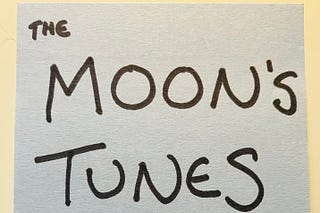 THE
MOON'S
TUNES